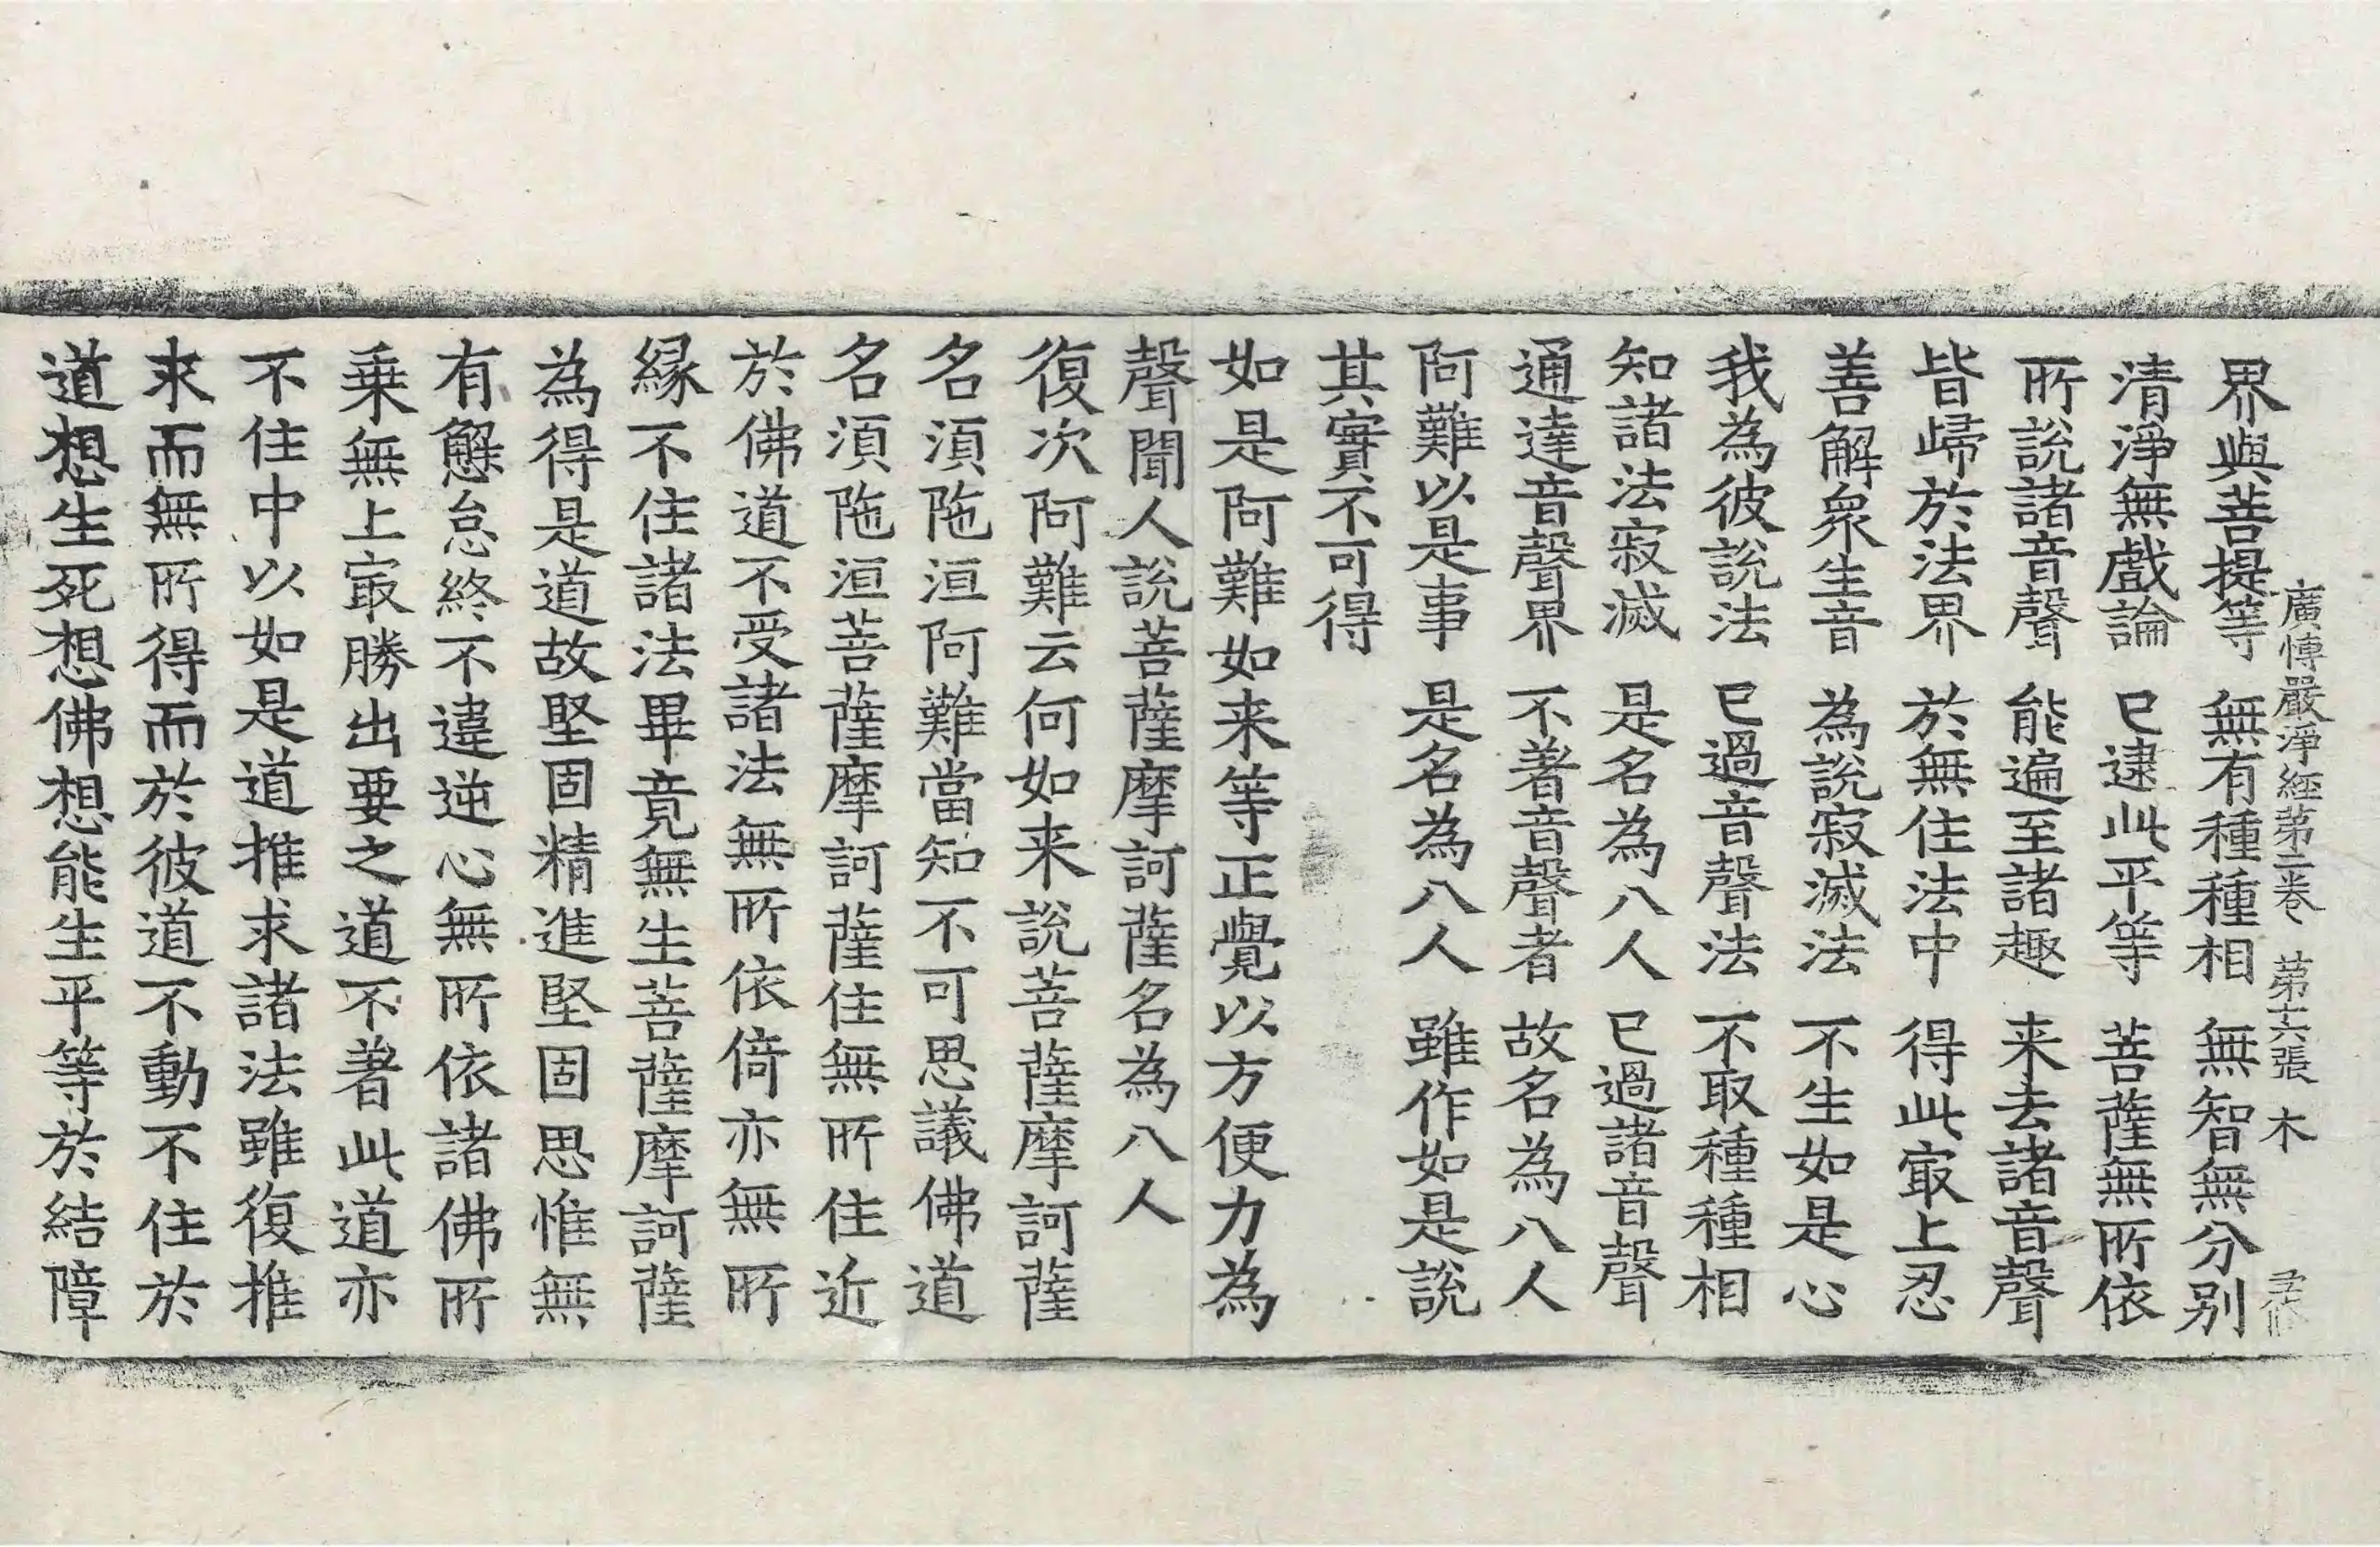 廣博嚴淨經第二卷　第十六張　木
界與菩提等　無有種種相　無智無分別
清淨無戲論　已逮此平等　菩薩無所依
所說諸音聲　能遍至諸趣　来去諸音聲
皆歸於法界　於無住法中　得此㝡上忍
善解衆生音　為說寂滅法　不生如是心
我為彼說法　已過音聲法　不取種種相
知諸法寂滅　是名為八人　已過諸音聲
通達音聲界　不著音聲者　故名為八人
阿難以是事　是名為八人　雖作如是說
其實不可得
如是阿難如来等正覺以方便力為
聲聞人說菩薩摩訶薩名為八人
復次阿難云何如来說菩薩摩訶薩
名湏陁洹阿難當知不可思議佛道
名湏陁洹菩薩摩訶薩住無所住近
於佛道不受諸法無所依倚亦無所
縁不住諸法畢竟無生菩薩摩訶薩
為得是道故堅固精進堅固思惟無
有懈怠終不違逆心無所依諸佛所
乗無上㝡勝出要之道不著此道亦
不住中以如是道推求諸法雖復推
求而無所得而於彼道不動不住於
道想生死想佛想能生平等於結障